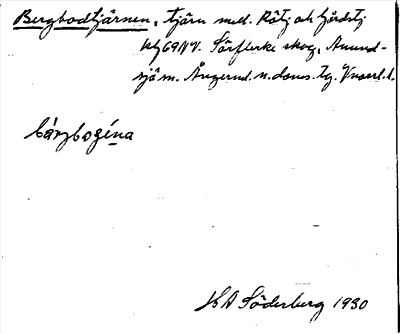 Bergbodtjärnen, tjärn mel. Rötj och Gårdtj
blj 69 NV. Sörflärke skog, Anund-
sjö sn. Ångerml. n. doms. tg. Vnorrl. l.
bárzbogę́na
KA Söderberg 1930